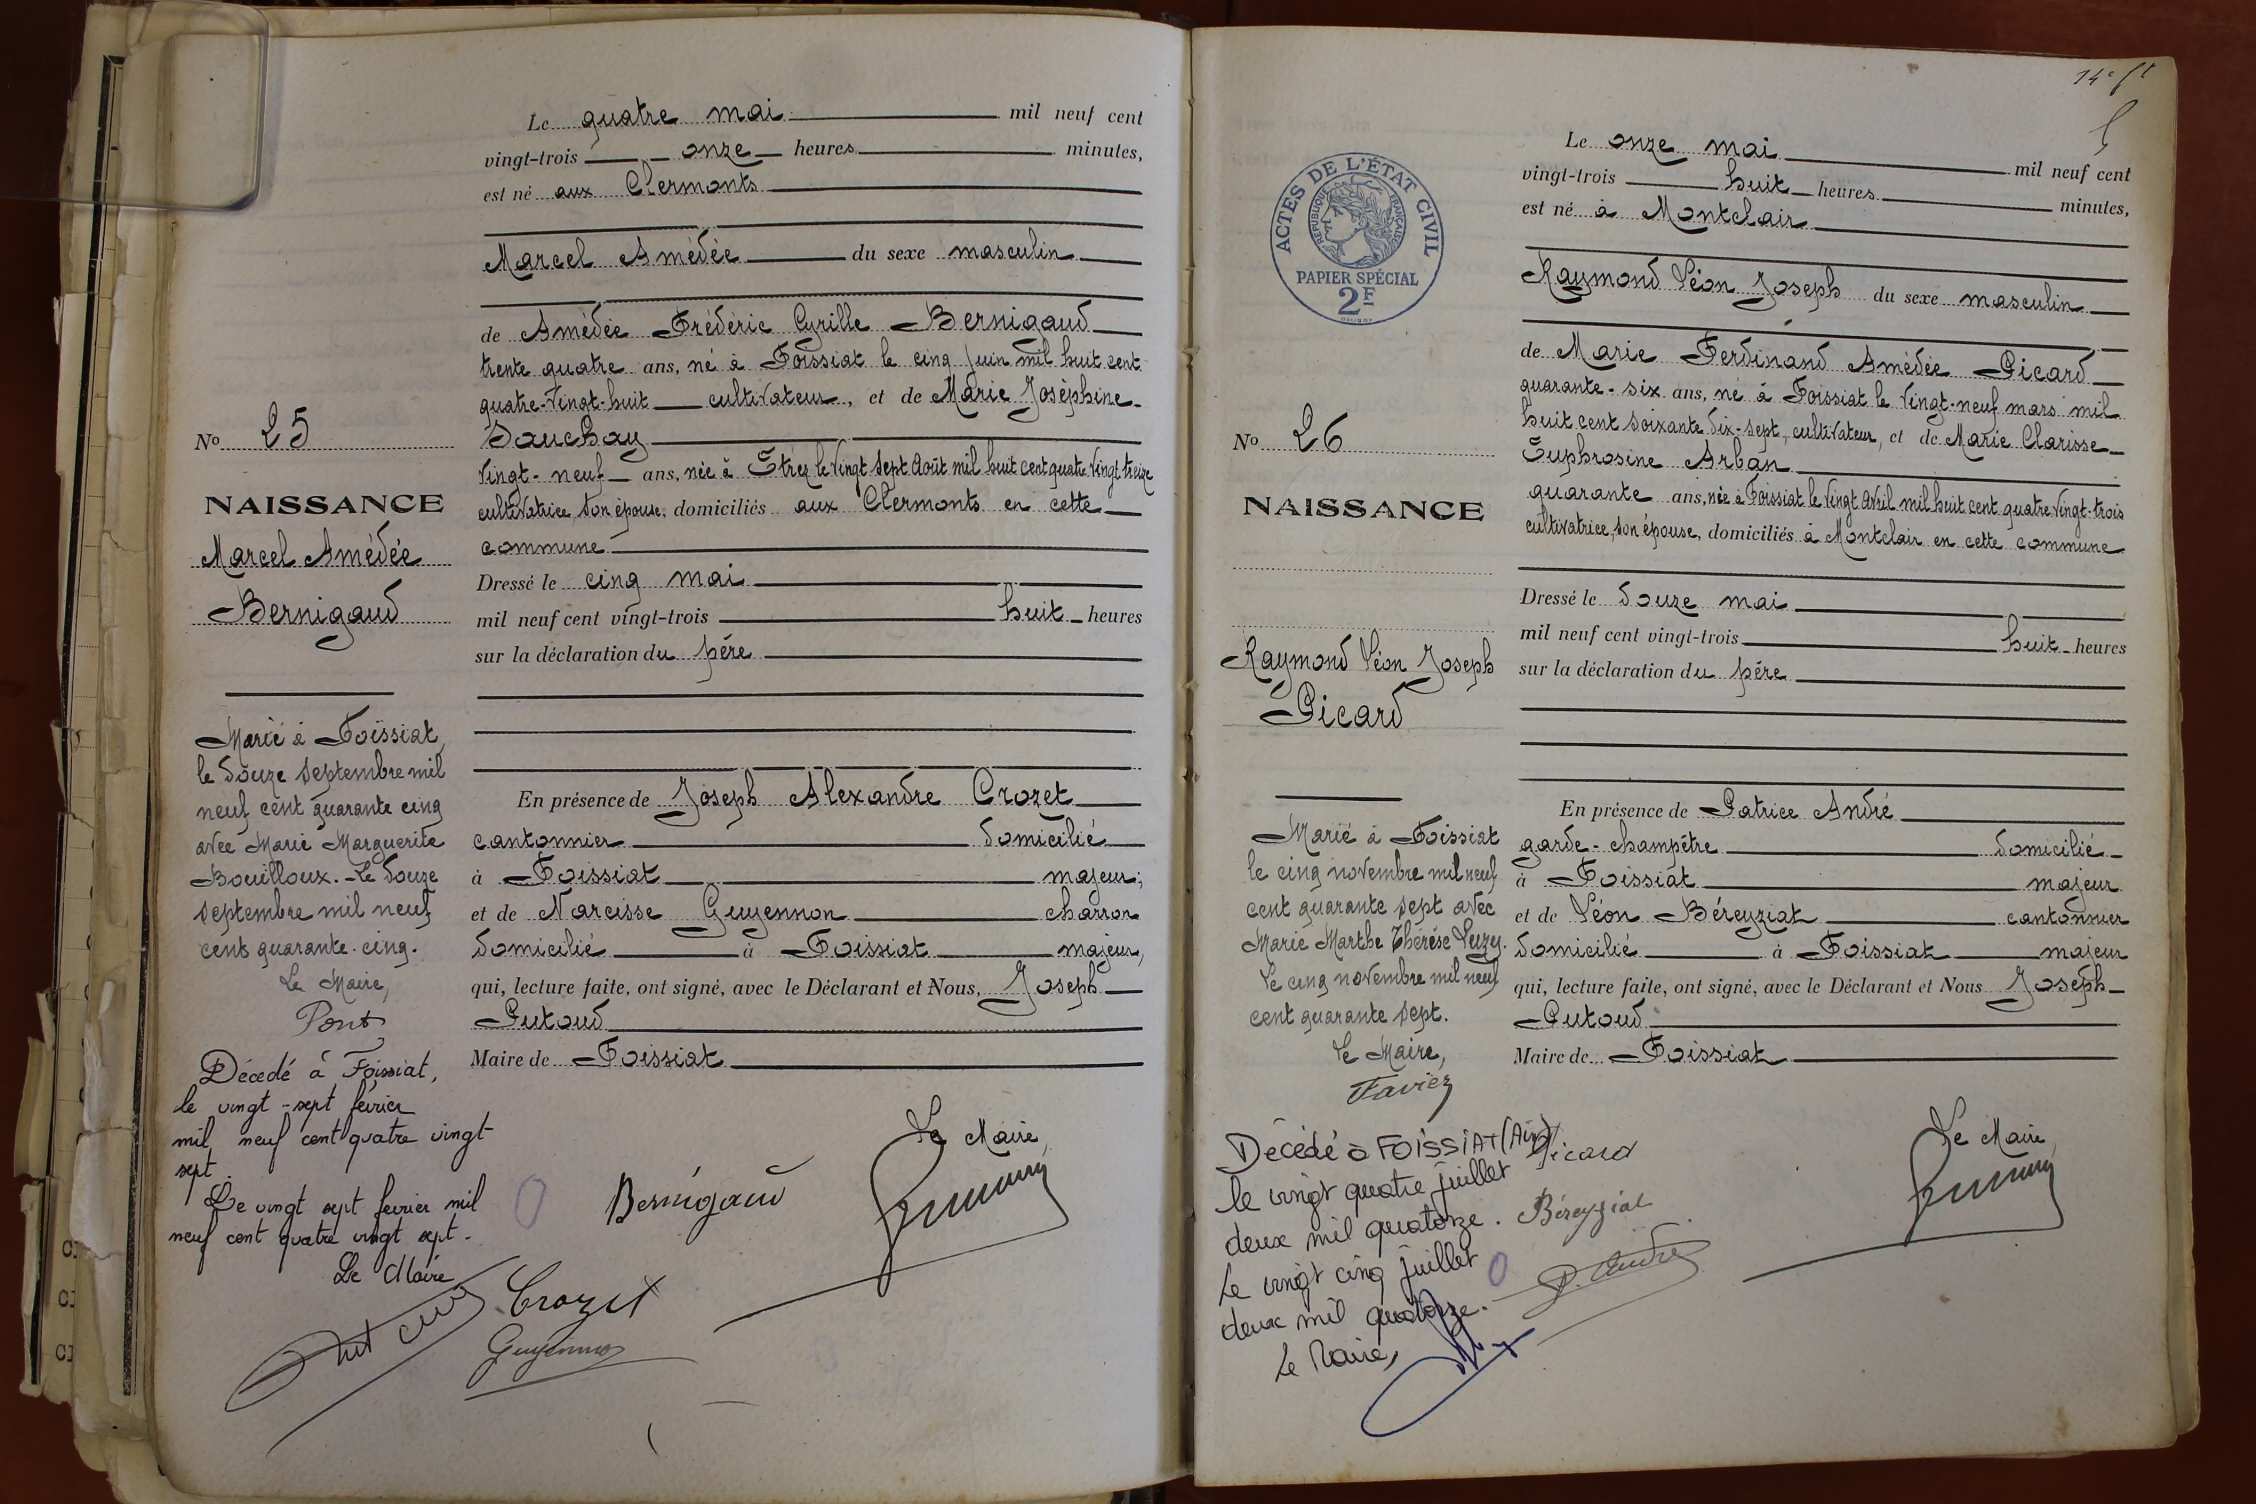 Le quatre mai mil neuf cent
vingt-trois onze heures minutes,
est né aux Clermonts
Marcel Amédée du sexe masculin
de Amédée Frédéric Cyrille Bernigaud
trente quatre ans, né à Foissiat le cinq juin mil huit cent
quatre-vingt-huit cultivateur, et de Marie Joséphine
Dauchay
vingt-neuf ans, née à Etrez le vingt sept août mil huit cent quatre vingt treize
cultivatrice son épouse, domiciliés aux Clermonts en cette
commune
Dressé le cinq mai
mil neuf cent vingt-trois huit heures
sur la déclaration du père
En présence de Joseph Alexandre Crozet
cantonnier domicilié
à Foissiat majeur;
et de Narcisse Guyennon charron
domicilié à Foissiat majeur,
qui, lecture faite, ont signé, avec le Déclarant et Nous, Joseph
Putoud
Maire de Foissiat
Le Maire,
Bernigaud
Crozet
Guyennon
No 25
NAISSANCE
Marcel Amédée
Bernigaud
Marié à Foissiat,
le douze septembre mil
neuf cent quarante cinq
avec Marie Marguerite
Bouilloux. - Le douze
septembre mil neuf
cent quarante-cinq.
Le Maire,
Pont
Décédé à Foissiat,
le vingt-sept février
mil neuf cent quatre vingt
sept.
Le vingt sept février mil
neuf cent quatre vingt sept.
Le Maire
14e ft
Le onze mai mil neuf cent
vingt-trois huit heures minutes,
est né à Montclair
Raymond Léon Joseph du sexe masculin
de Marie Ferdinand Amédée Picard
quarante-six ans, né à Foissiat le vingt-neuf mars mil
huit cent soixante dix-sept, cultivateur, et de Marie Clarisse
Euphrosine Arban
quarante ans, née à Foissiat le vingt avril mil huit cent quatre vingt-trois
cultivatrice, son épouse, domiciliés à Montclair en cette commune
Dressé le douze mai
mil neuf cent vingt-trois huit heures
sur la déclaration du père
En présence de Patrice André
garde-champêtre domicilié
à Foissiat majeur
et de Léon Béreyziat cantonnier
domicilié à Foissiat majeur
qui, lecture faite, ont signé, avec le Déclarant et Nous Joseph
Putoud
Maire de Foissiat
Le Maire,
Picard
Béreyziat
P. André
ACTES DE L'ÉTAT CIVIL
RÉPUBLIQUE FRANÇAISE
PAPIER SPÉCIAL
2F
No 26
NAISSANCE
Raymond Léon Joseph
Picard
Marié à Foissiat
le cinq novembre mil neuf
cent quarante sept avec
Marie Marthe Thérèse Luzy.
Le cinq novembre mil neuf
cent quarante sept.
Le Maire,
Favier
Décédé à FOISSIAT (Ain)
le vingt quatre juillet
deux mil quatorze.
Le vingt cinq juillet
deux mil quatorze.
Le Maire,